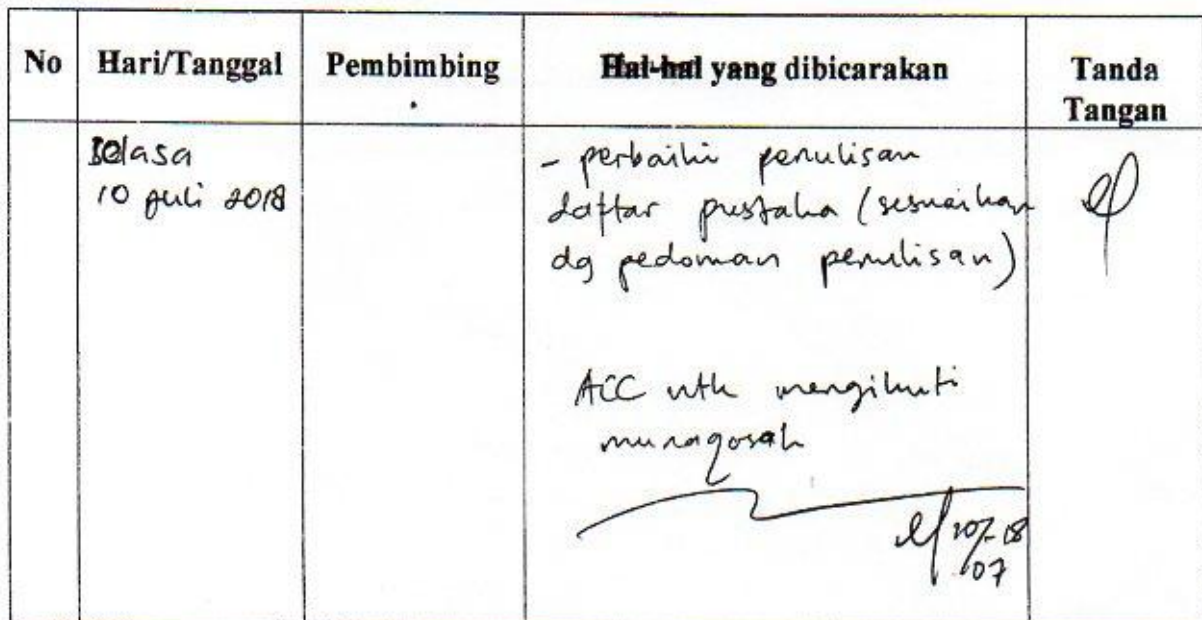 No Hari/Tanggal Pembimbing Hal-hal yang dibicarakan Tanda
Tangan
Selasa
10 Juli 2018
- perbaiki penulisan
daftar pustaka (sesuaikan
dg pedoman penulisan)
ACC utk mengikuti
munaqosah
10/-18
07